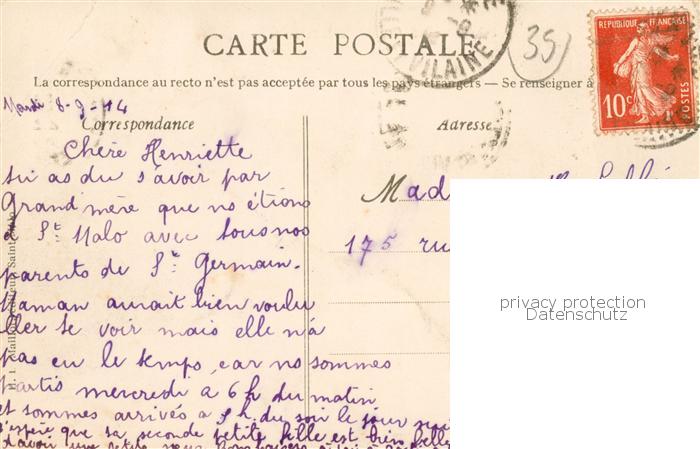 CARTE POSTALE
35
RÉPUBLIQUE FRANÇAISE
10c
POSTES
VILAINE
La correspondance au recto n'est pas acceptée par tous les pays étrangers — Se renseigner à
Mardi 8-9-14
Correspondance
Adresse
Chère Henriette
tu as du s'avoir par
Grand mère que ns étions
a St Malo avec tous nos
parents de St Germain.
Maman aurait bien voulu
aller te voir mais elle n'a
pas eu le temps, car ns sommes
partis mercredi a 6 h du matin
et sommes arrivés a 5 h. du soir le jour
J'espère que ta seconde petite fille est bien belle
d'avoir une petite
Mad
175 ru
privacy protection
Datenschutz